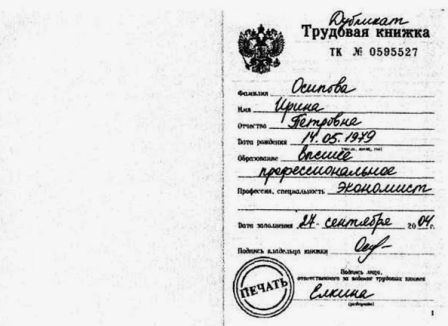 Дубликат
Трудовая книжка
ТК № 0595527
Фамилия Осипова
Имя Ирина
Отчество Петровна
Дата рождения 14.05.1979
(число, месяц, год)
Образование высшее
профессиональное
Профессия, специальность экономист
Дата заполнения 24 сентября 2004г.
Подпись владельца книжки
Подпись лица,
ответственного за ведение трудовых книжек
ПЕЧАТЬ
Елкина
(разборчиво)
1